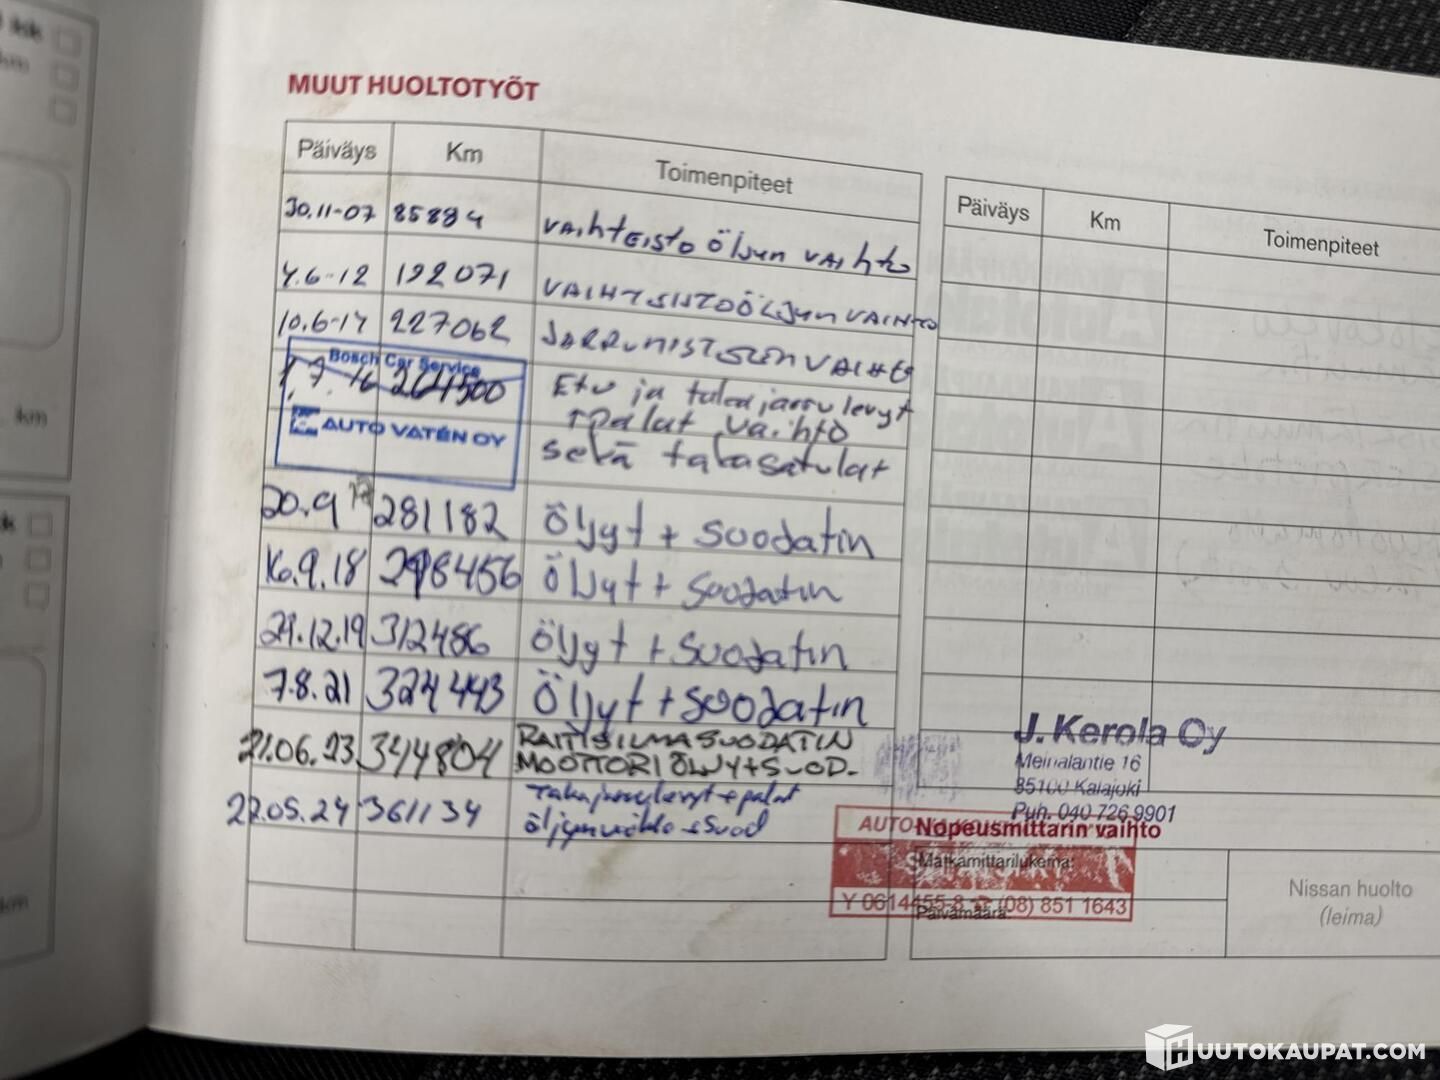 kk
km
km
km
MUUT HUOLTOTYÖT
Päiväys Km Toimenpiteet
30.11-07 85884 VAIHTEISTO ÖLJYN VAIHTO
4.6-12 192071 VAIHTEISTOÖLJYN VAIHTO
10.6-14 227062 JARRUNESTEEN VAIHTO
Bosch Car Service
1.7.16 264500 Etu ja takajarrulevyt
+palat vaihto
AUTO VATÉN OY
sekä takasatulat
20.9 17 281182 Öljyt + suodatin
16.9.18 298456 Öljyt + suodatin
312486 Öljyt + suodatin
7.8.21 324443 Öljyt + suodatin
21.06.23 344804 RAITISILMASUODATIN
MOOTTORIÖLJYT+SUOD.
22.05.24 361134 Takajarrulevyt + palat
öljynvaihto + suod
Päiväys Km Toimenpiteet
J. Kerola Oy
Meinalantie 16
85100 Kalajoki
Puh. 040 726 9901
Nopeusmittarin vaihto
Matkamittarilukema:
Päivämäärä:
AUTO
Y 0614455-8 ☎ (08) 851 1643
Nissan huolto
(leima)
HUUTOKAUPAT.COM